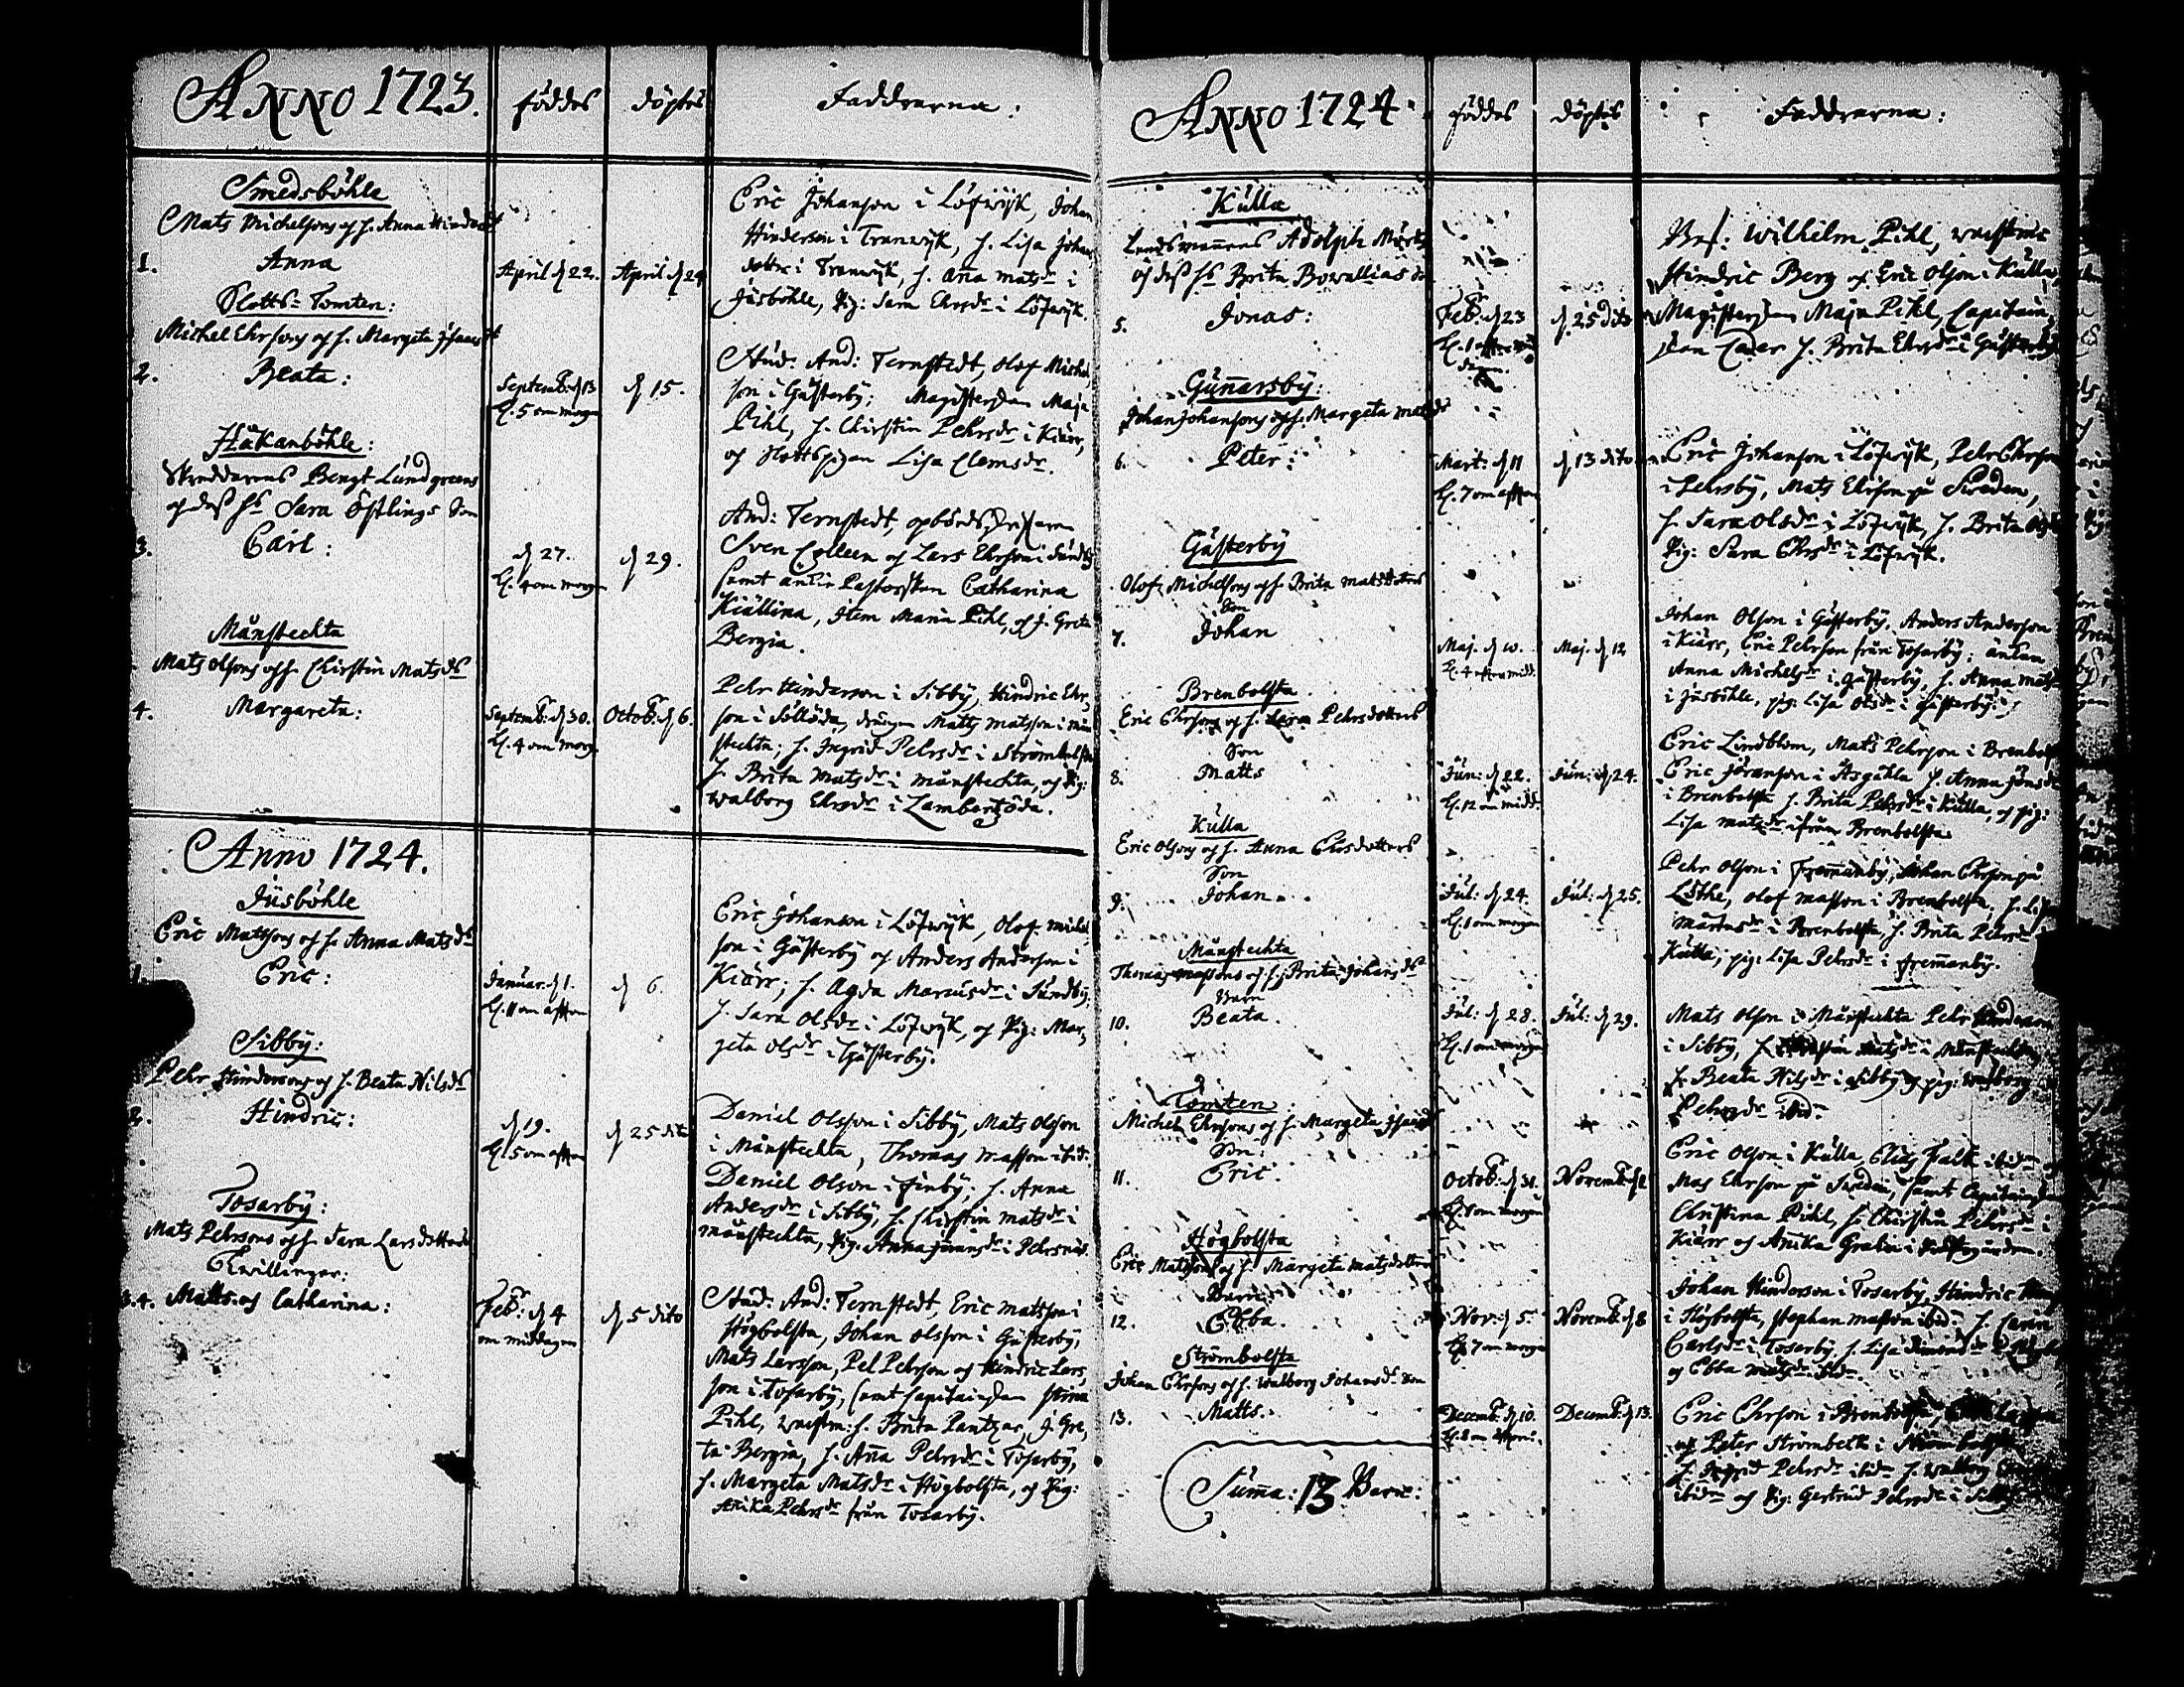 ANNO 1723.
föddes
döptes
Faddrarna:
Smedsböhle
Mats Michelsons och h. Anna Hindersdt
1.
Anna
April d 22.
April d 24
Eric Johanson i Löfwijk, Johan
Hinderson i Tranwijk, h. Lisa Johans
dotter i Tranwijk, h. Aña matsdr i
Jusböhle, Pig: Sara Ehrsdr i Löfwijk.
Slotts-Tomten:
Michel Ehrsons och h. Margeta
2.
Beata:
Septemb. d 13
kl. 5 om morgn
d 15.
Stud: And: Ternstedt, Olof Michel
son i Gästerby; Magisterskan Maja
Pihl, h. Chirstin Pehrsdr i Kiärr,
och Slottspigan Lisa Clemsdr.
Håkanböhle:
Skreddarens Bengt Lundgreens
och dess hs Sara Östlings Son
3.
Carl:
d 27.
kl. 4 om morgn
d 29.
And: Ternstedt, opbördsskrifwaren
Sven Colleen och Lars Ehrson i Sundby
samt änkie Pastorskan Catharina
Kiällina, Item Maria Pihl, och J. Greta
Bergia.
Månstechta
Mats Olsons och h. Chirstin Matsds
4.
Margareta:
Septemb: d 30.
kl. 4 om morg.
Octob: d 6.
Pehr Hinderson i Sibby, Hindric Ehr,
son i Söllöda, drängen Matts Matsson i mån
stechta; h. Ingrid Pehrsdr i Strömbolsta
h. Brita Matsdr i månstechta, och Pig:
Walborg Ehrsdr i Lambertzöda.
Anno 1724.
Jusböhle
Eric Matssons och h. Anna Matsds
1.
Eric:
Januar. d 1.
kl. 11 om afton
d 6.
Eric Johanson i Löfwijk, Olof michel
son i Gästerby och Anders Anderson i
Kiärr; h. Agda Marcusdr i Sundby,
h. Sara Olsdr i Löfwijk, och Pig: Mar,
geta Olsdr i Gästerby.
Sibby:
Pehr Hindersons och h. Beata Nilsds
2.
Hindric:
d 19.
kl. 5 om afton
d 25 dito
Daniel Olsson i Sibby, Mats Olsson
i Månstechta, Thomas Masson ibid:
Daniel Olson i Finby; h. Anna
Andersdr i Sibby, h. Chirstin Matsdr i
månstechta, Pig: Anna Jöransdr i Pehrsnäs.
Tosarby:
Mats Pehrsons och h. Sara Larsdotters
Twillingar:
3.4.
Matts och Catharina:
Feb: d 4
om middagen
d 5 dito
Stud: And: Ternstedt, Eric matsson i
Högbolsta, Johan Olsson i Gästerby,
Mats Larsson, Pel Pehrson och Hindric Lars,
son i Tosarby, samt Capitainskan Stina
Pihl, h. Brita Pantzar, J. Gre,
ta Bergia, h. Aña Pehrsdr i Tosarby,
h. Margeta Matsdr i Högbolsta, och Pig:
Anika Pehrsdr från Tosarby.
ANNO 1724.
föddes
döptes
Faddrarna:
Kulla
Lendsmannens Adolph
och dess hs Brita Bowallias
5.
Jonas:
Feb: d 23
kl. 1
d 25 dito
Wilhelm Pihl,
Hindric Berg och Eric Olson i Kulla,
Magisterskan Maja Pihl, Capitain,
skan h. Brita Ehrsdr i Gästerby
Gunnarsby:
Johan Johansons och h. Margeta matsds
6.
Peter:
Mart: d 11
kl. 7 om afton
d 13 dito
Eric Johanson i Löfwijk, Pehr Ehrson
i Pehrsby, Mats Ericson på Sweden,
h. Sara Olsdr i Löfwijk, h. Brita
Pig: Sara Ehrsdr i Löfwijk.
Gästerby
Olof Michelsons och h. Brita matsdotters
Son
7.
Johan
Maj. d 10.
kl. 4
Maj. d 12
Johan Olson i Gästerby, Anders Anderson
i Kiärr, Eric Pehrson från Tosarby; änkan
Anna Michelsdr i Gästerby, h. Anna mats
i Jusböhle, pig: Lisa Olsdr i Gästerby.
Brenbolsta
Eric Ehrsons och h. Pehrsdotters
Son
8.
Matts
Jun: d 22.
kl. 12 om midd:
Jun: d 24.
Eric Lindblom, Mats Pehrson i Brenbolst
Eric Jöranson i Åsgähla h. Anna Jönsdr
i Brenbolsta h. Brita Pehrsdr i Kulla, och pig:
Lisa matsdr ifrån Brenbolsta
Kulla
Eric Olsons och h. Anna Ehrsdotters
Son
9.
Johan.
Jul: d 24.
kl. 1 om morgen
Jul: d 25.
Pehr Olson i Fremanby, Johan Ehrson på
Löthe, Olof Masson i Brenbolsta, h. Lisa
Mårtensdr i Brenbolsta, h. Brita Pehrsdr i
Kulla, pig: Lisa Pehrsdr i Fremanby.
Månstechta
Thomas Massons och h. Brita Johansds
Barn
10.
Beata.
Jul: d 28.
kl. 1 om morgon
Jul: d 29.
Mats Olson i Månstechta Pehr Hinderson
i Sibby, h. Chirstin Matsdr i Månstechta,
h. Beata Nilsdr i Sibby och pig: Walborg
Pehrsdr ibid:
Tomten:
Michel Ehrsons och h. Margeta
Son:
11.
Eric.
Octob: d 31.
kl. 8 om morgon
Novemb: d 2
Eric Olson i Kulla, Elias Falk ibidm
Mas Ehrson på Sweden, samt Capitainskan
Christina Pihl, h. Chirstin Pehrsdr i
Kiärr och Anika Grelin i
Högbolsta
Eric Matssons och h. Margeta matsdotters
Barn
12.
Ebba.
Nov: d 5.
kl. 7 om morgn
Novemb: d 8
Johan Hinderson i Tosarby, Hindric
i Högbolsta, Stephan masson ibid: h. Carin
Carlsdr i Tosarby, h. Lisa Simonsdr i
och Ebba matsdr ibid.
Strömbolsta
Johan Ehrsons och h. Walborg Johansdr Son
13.
Matts.
Decemb: d 10.
kl. 8 om
Decemb: d 13.
Eric Ehrson i Brenbolsta,
och Peter Strömbeck i Strömbolsta
h. Ingrid Pehrsdr ibidm h. Walborg
ibidm och Pig: Gertrud Pehrsdr i Sibby
Summa: 13 Barn: